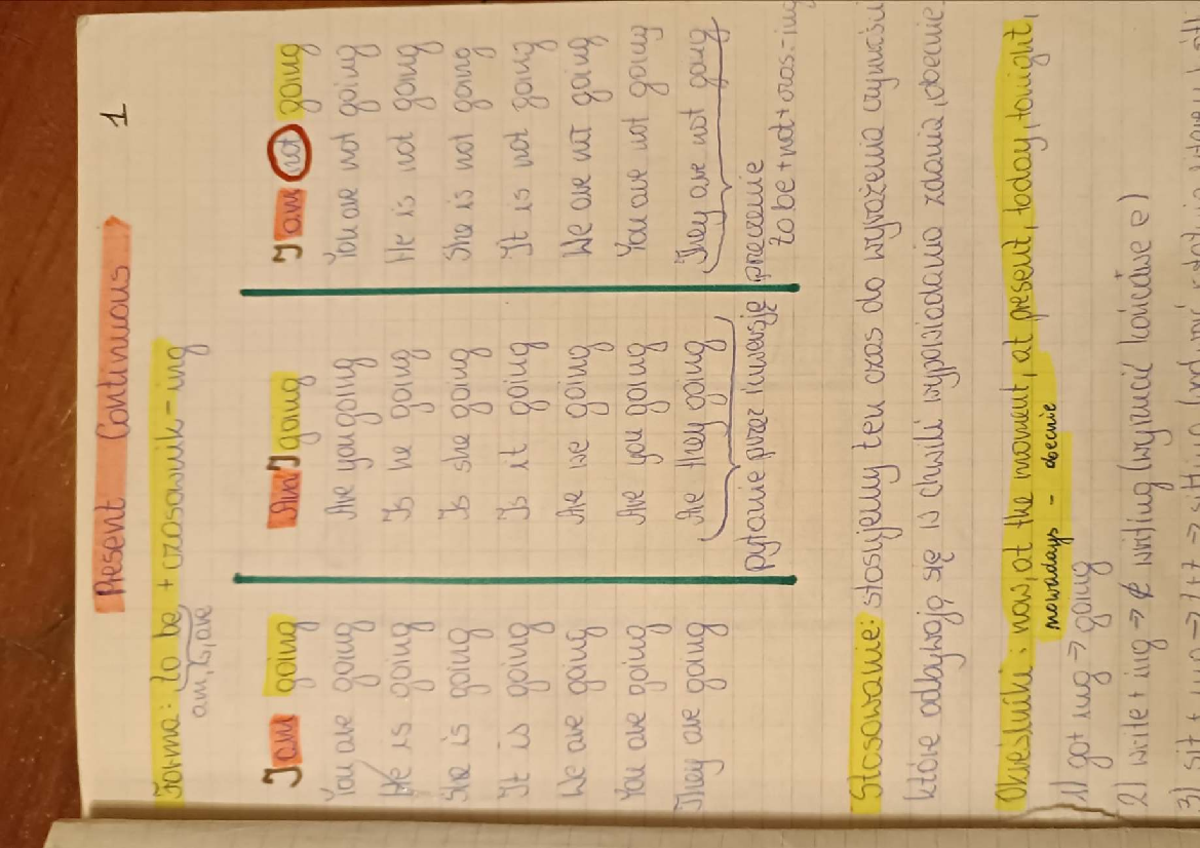 1
Present Continuous
Forma: to be + czasownik - ing
am, is, are
I am going Am I going I am not going
You are going Are you going You are not going
He is going Is he going He is not going
She is going Is she going She is not going
It is going Is it going It is not going
We are going Are we going We are not going
You are going Are you going You are not going
They are going Are they going They are not going
pytanie przez inwersję przeczenie
to be + not + czas - ing
Stosowanie: stosujemy ten czas do wyrażenia czynności
które odbywają się is chwili wypowiadania zdania, obecnie.
Określniki: now, at the moment, at present, today, tonight,
nowadays - obecnie
1) go + ing → going
2) write + ing → e writing (wyrzucić końcówe e)
3) sit + ing → t+t → sitting